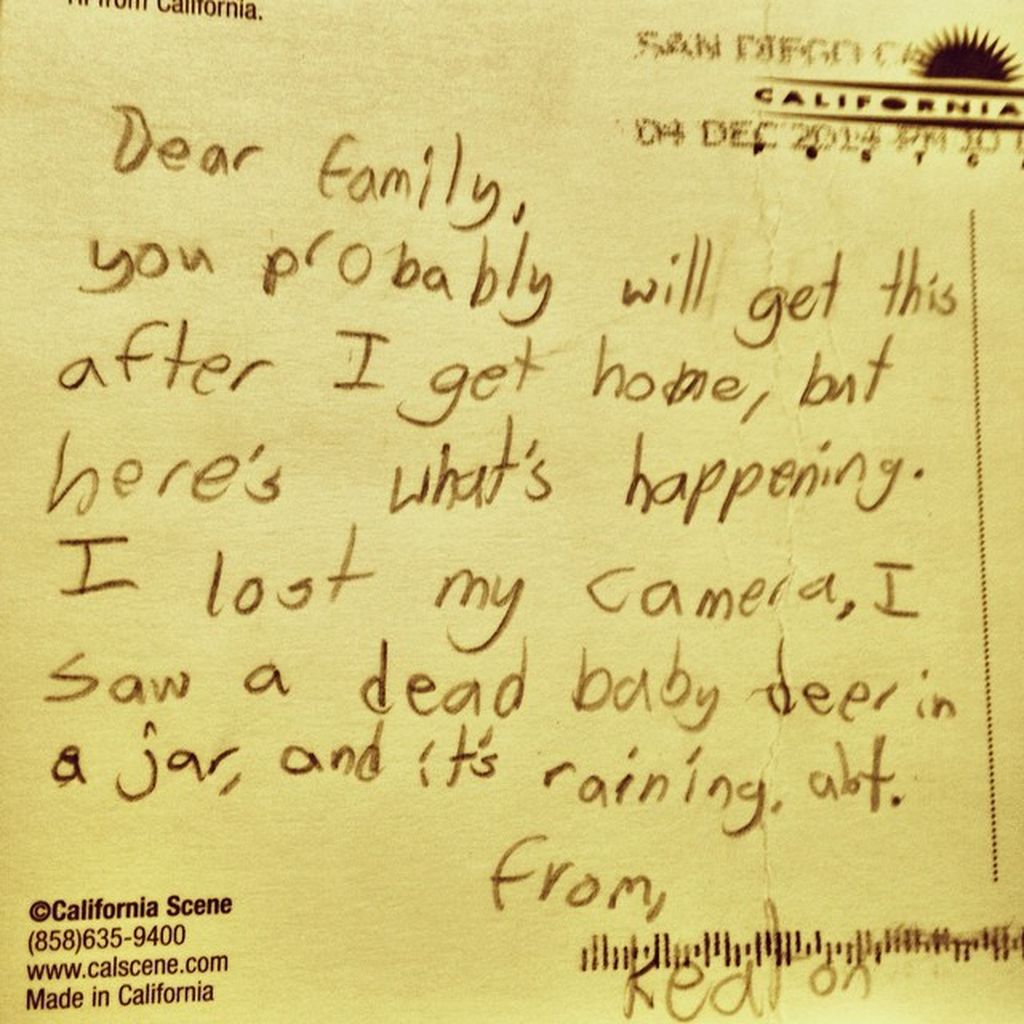 from California.
SAN DIEGO CA
CALIFORNIA
04 DEC 2014 PM
Dear family,
you probably will get this
after I get home, but
here's what's happening.
I lost my camera, I
saw a dead baby deer in
a jar, and it's raining. alot.
from,
©California Scene
(858)635-9400
www.calscene.com
Made in California